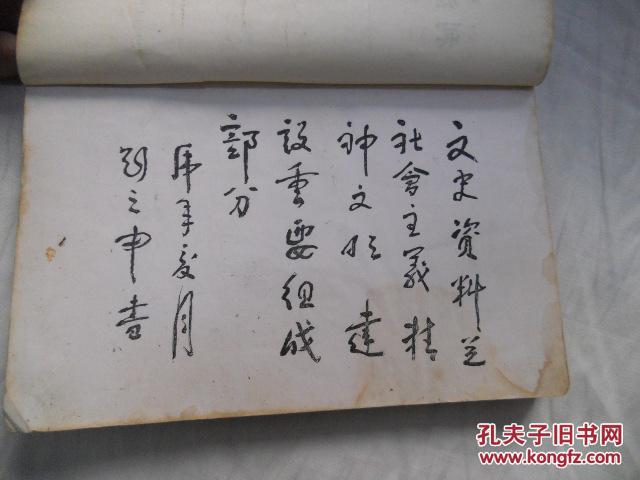 文史資料是
社會主義精
神文明建
設重要組成
部分
虎年夏月
之申書
孔夫子旧书网
www.kongfz.com